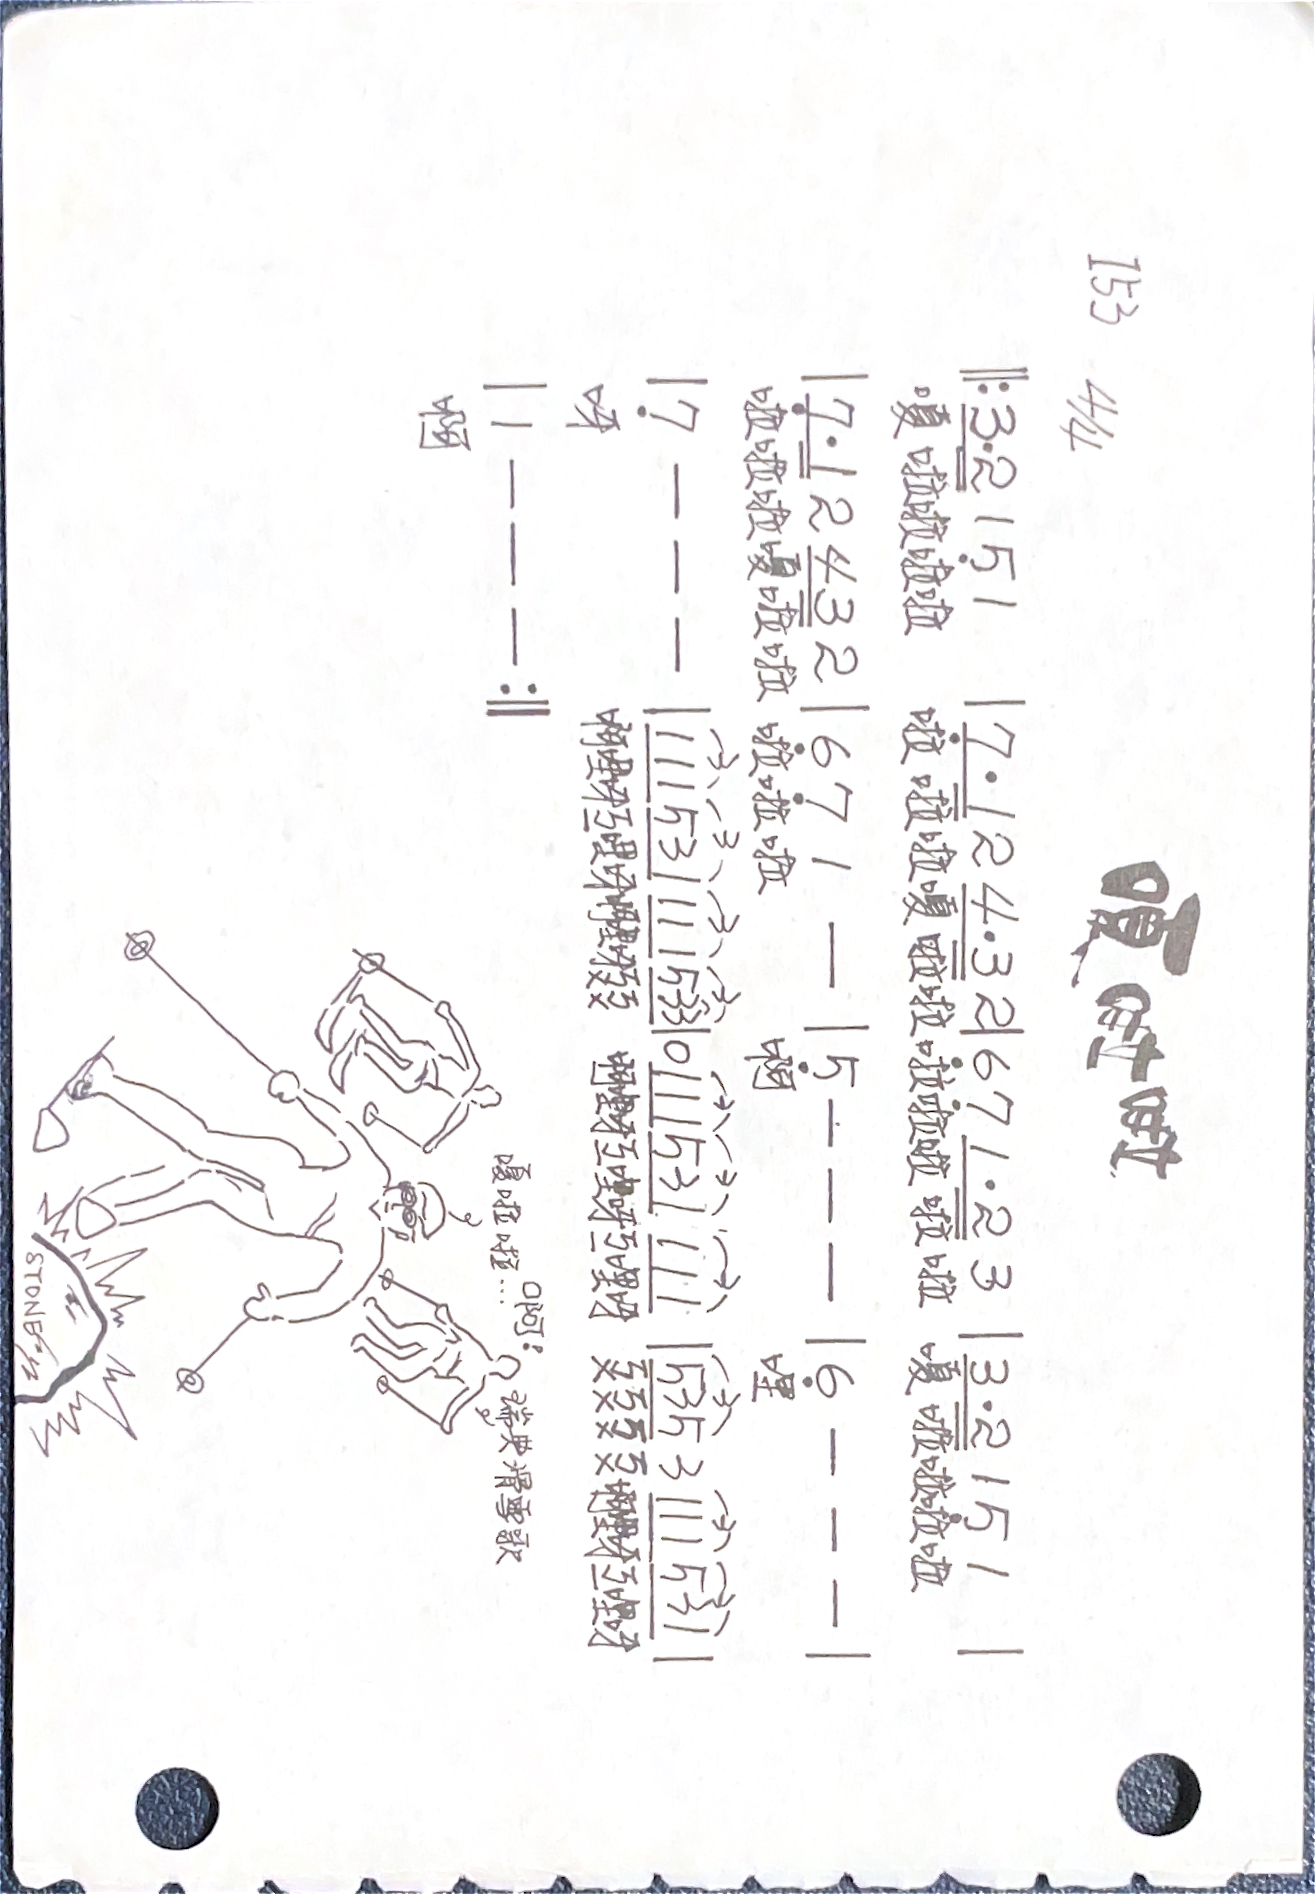 嘎啦啦
153 4/4
‖: 3·2 1 5 1 | 7·1 2 4·3 2 | 6 7 1·2 3 | 3·2 1 5 1 |
嘎啦啦啦啦 啦啦啦嘎啦啦 啦啦啦啦啦 嘎啦啦啦啦
| 7·1 2 4 3 2 | 6 7 1 — | 5 — — — | 6 — — — |
啦啦啦嘎啦啦 啦啦啦 啊 哩
3 3 3 3 3 3 3 3 3 3
| 7 — — — | 111 531 111 533 | 0 111 531 111 | 535 3 111 531 |
呀 啊哩呀ㄛ哩呀啊哩呀 啊哩呀ㄛ哩呀ㄛ哩呀 啊哩呀ㄛ哩呀
| 1 — — — :‖
啊
嘎啦啦... 啊! 瑞典滑雪歌
STONE